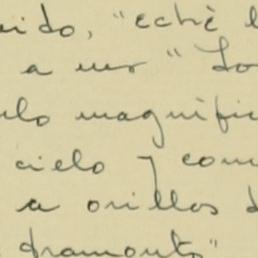 ido, "eché
a un " Lo
lo magnífic
cielo y com
a orillas d
dramonts"